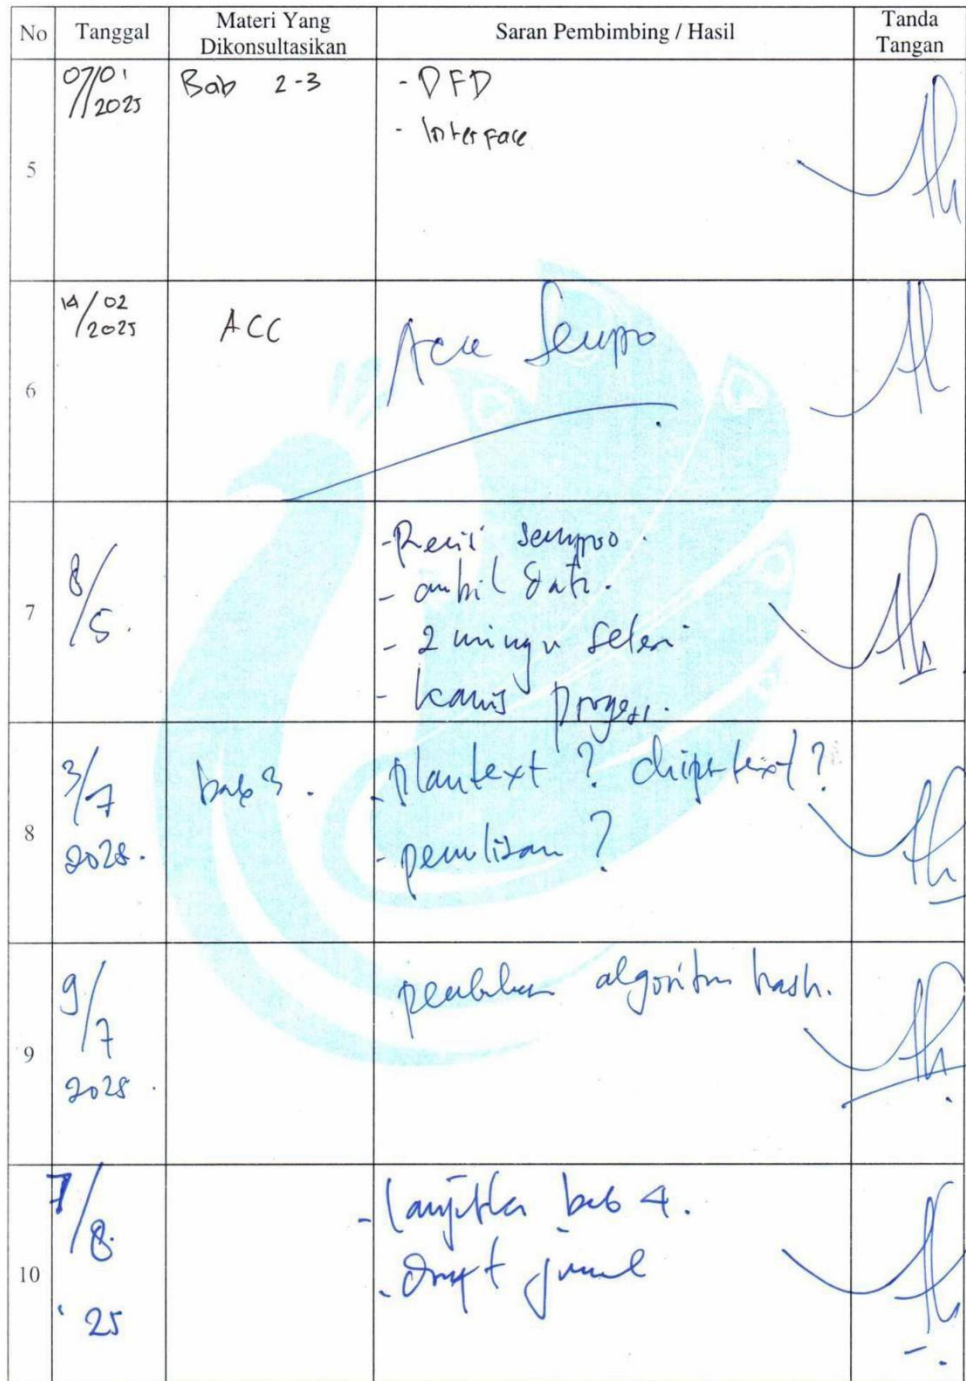 No Tanggal Materi Yang Dikonsultasikan Saran Pembimbing / Hasil Tanda Tangan
5 07/01/2025 Bab 2-3 - DFD
- Interface
6 14/02/2025 ACC Acc Sempro
7 8/5. - Revisi sempro.
- ambil data.
- 2 minggu selesai
- kamis progres.
8 3/7 2025. bab 3. - plantext ? chipertext ?
- penulisan ?
9 9/7 2025. algoritm hash.
10 7/8. '25 - lanjutkan bab 4.
- draft jurnal